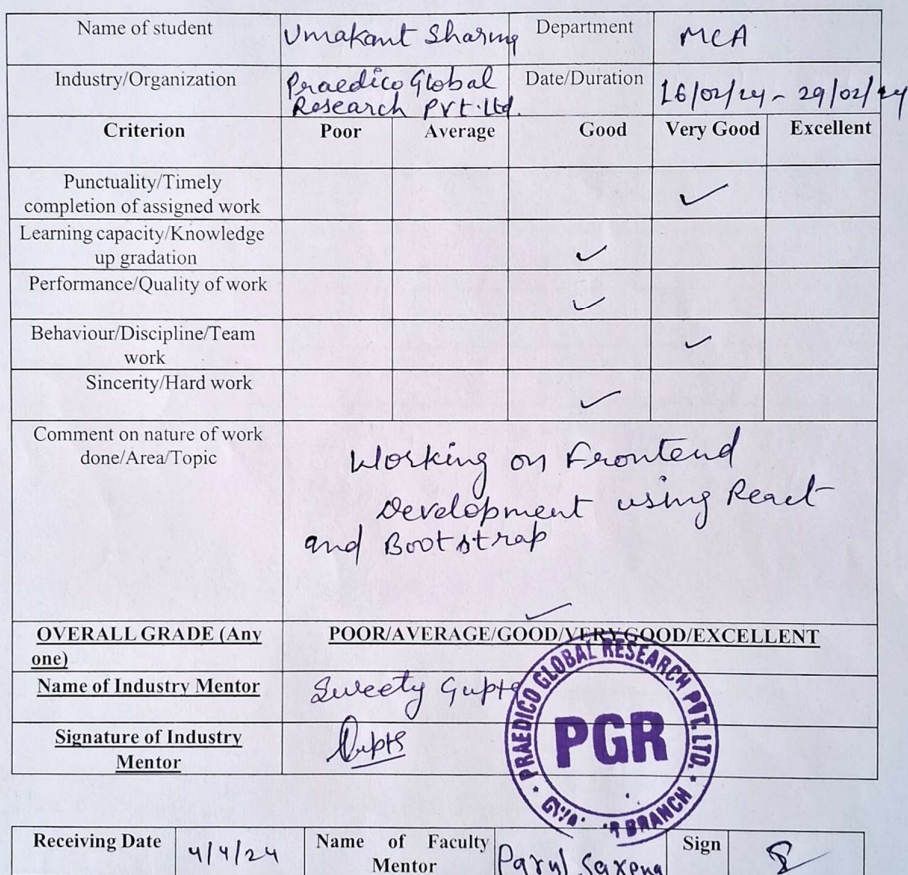 Name of student Umakant Sharma Department MCA
Industry/Organization Praedico Global Research Pvt. Ltd. Date/Duration 16/02/24 - 29/02/24
Criterion Poor Average Good Very Good Excellent
Punctuality/Timely
completion of assigned work ✓
Learning capacity/Knowledge
up gradation ✓
Performance/Quality of work ✓
Behaviour/Discipline/Team
work ✓
Sincerity/Hard work ✓
Comment on nature of work
done/Area/Topic
Working on Frontend
Development using React
and Bootstrap
✓
OVERALL GRADE (Any
one)
POOR/AVERAGE/GOOD/VERY GOOD/EXCELLENT
Name of Industry Mentor Sweety Gupta
Signature of Industry
Mentor Gupta
PRAEDICO GLOBAL RESEARCH PVT. LTD.
PGR
BRANCH
Receiving Date 4/4/24 Name of Faculty
Mentor Parul Saxena Sign